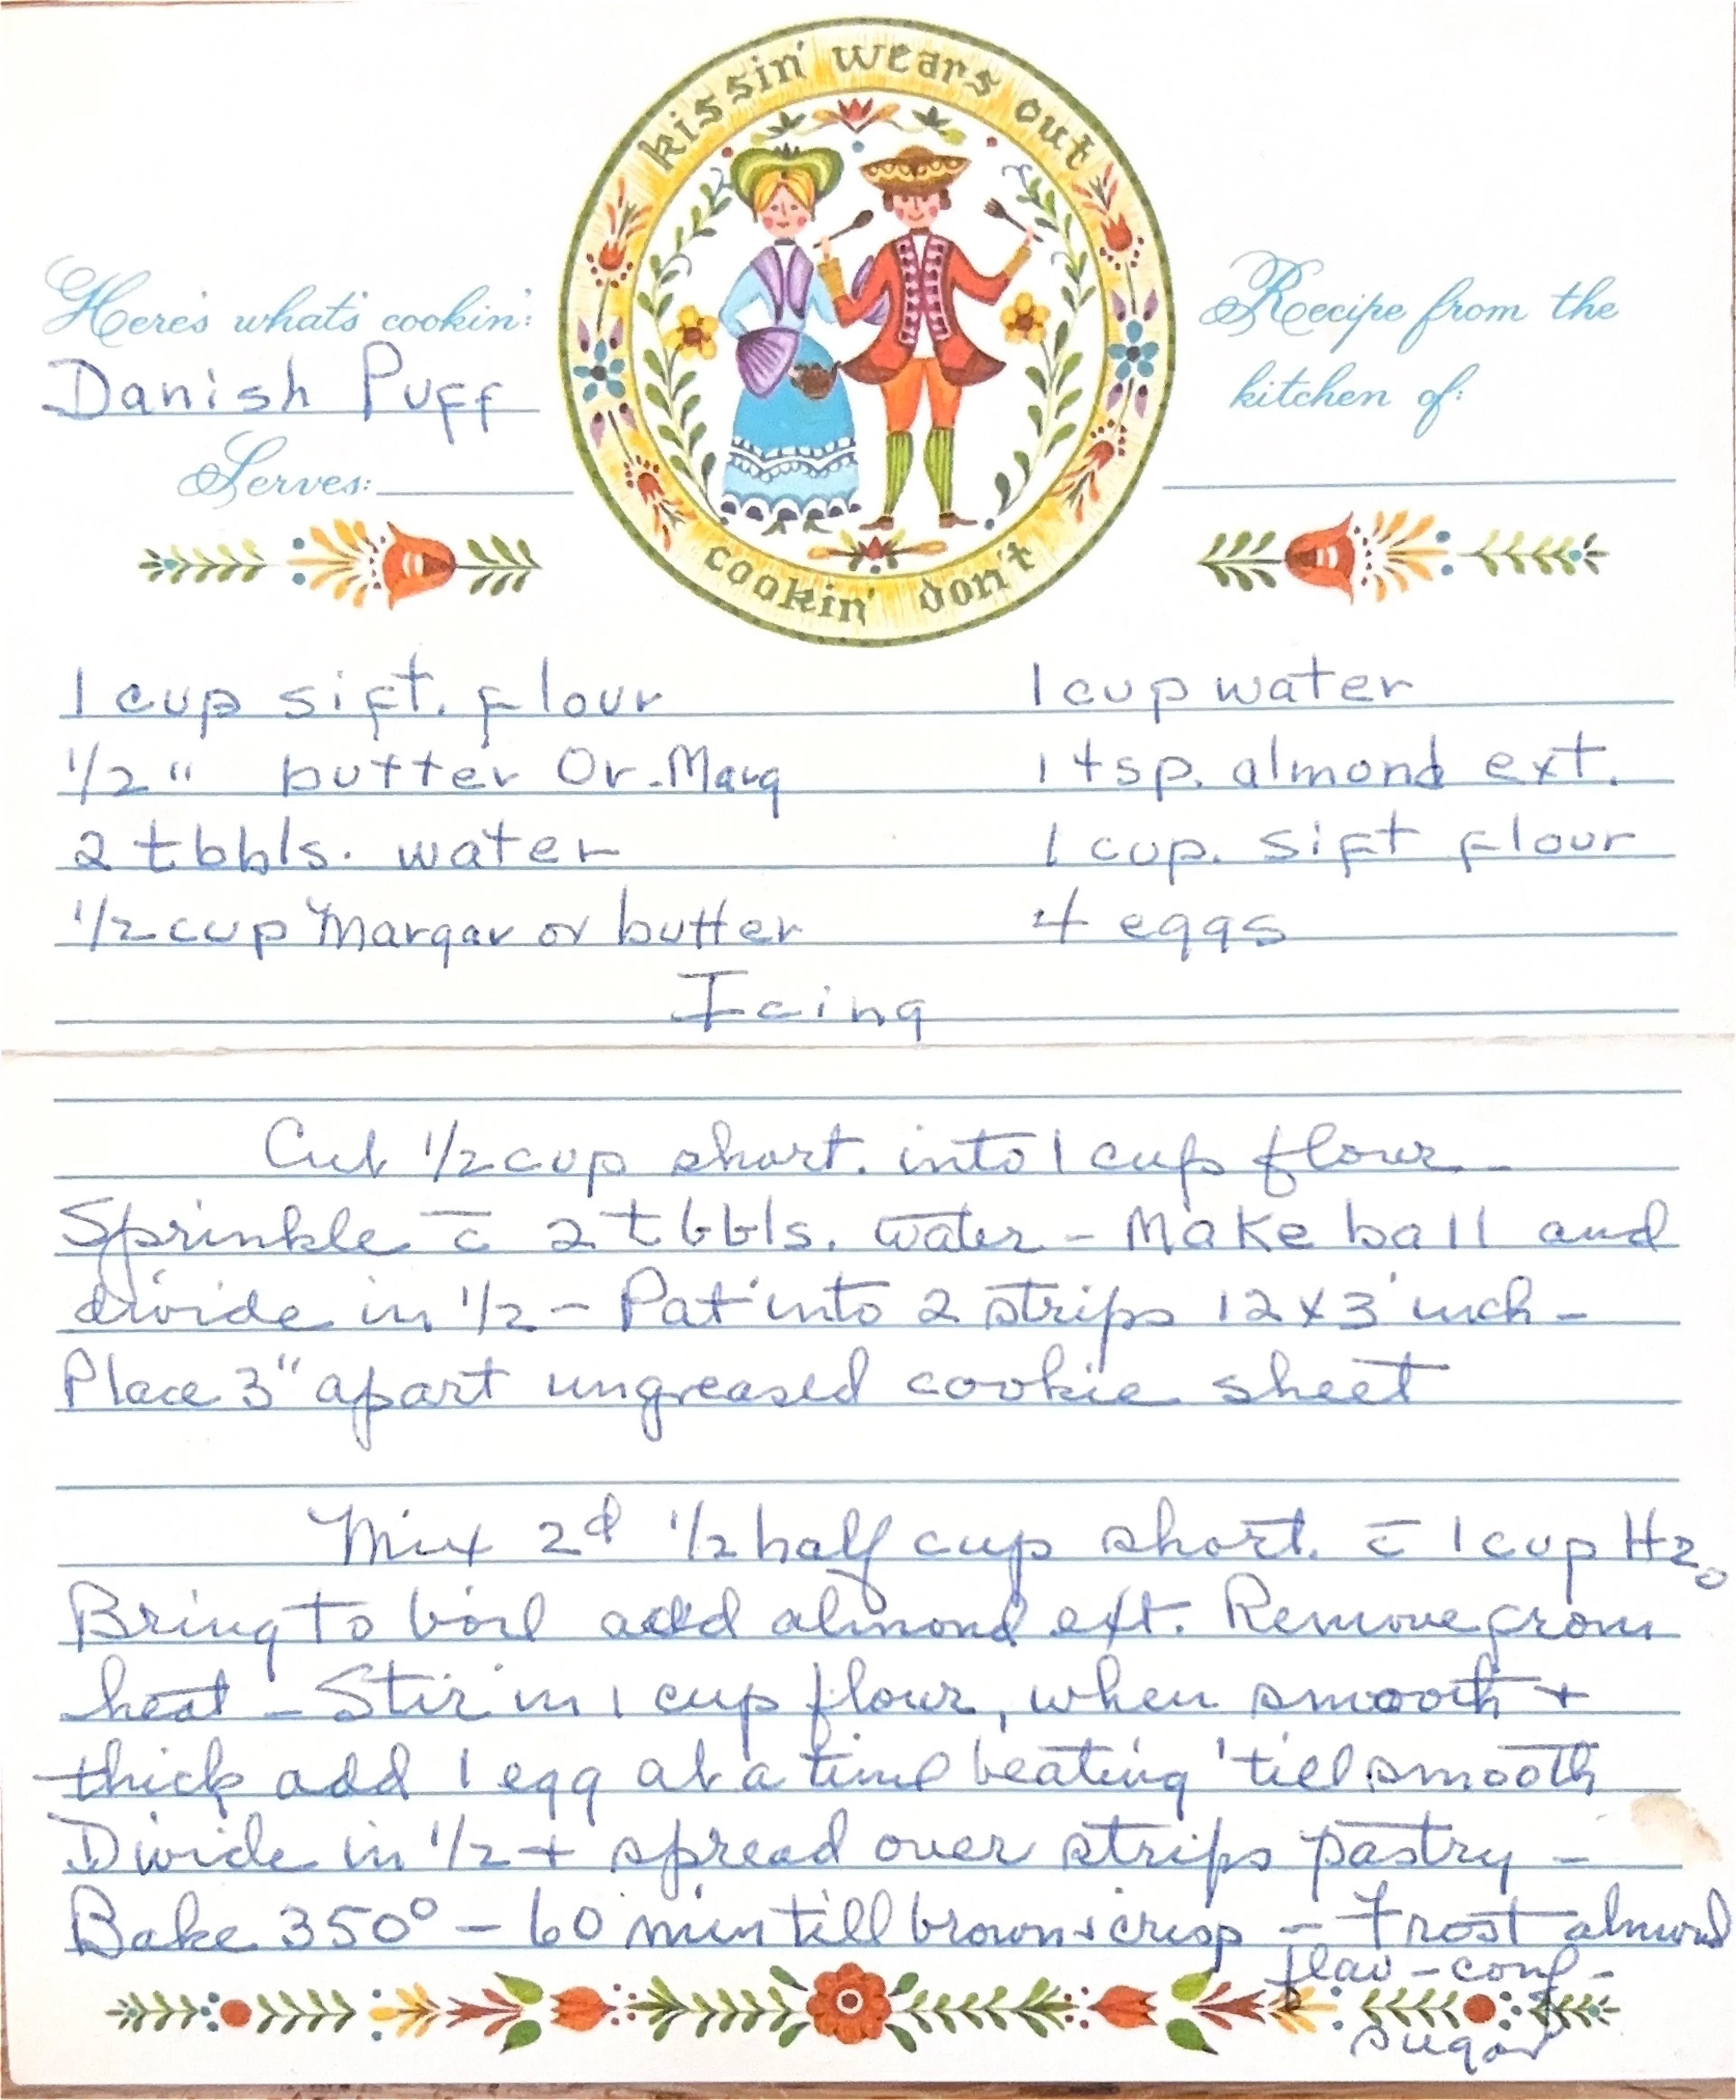 kissin' wears out
cookin' don't
Here's what's cookin':
Danish Puff
Serves:
Recipe from the
kitchen of:
1 cup sift. flour
1/2 " butter Or. Marg
2 tbbls. water
1/2 cup Margar or butter
1 cup water
1 tsp. almond ext.
1 cup. sift flour
4 eggs
Icing
Cut 1/2 cup short. into 1 cup flour -
Sprinkle c̄ 2 tbbls. water - Make ball and
divide in 1/2 - Pat into 2 strips 12 x 3 inch -
Place 3" apart ungreased cookie sheet
Mix 2d 1/2 half cup short. c̄ 1 cup H2O
Bring to boil add almond ext. Remove from
heat - Stir in 1 cup flour, when smooth +
thick add 1 egg at a time beating 'till smooth
Divide in 1/2 + spread over strips pastry -
Bake 350° - 60 min till brown + crisp - Frost almond
flav - conf -
sugar